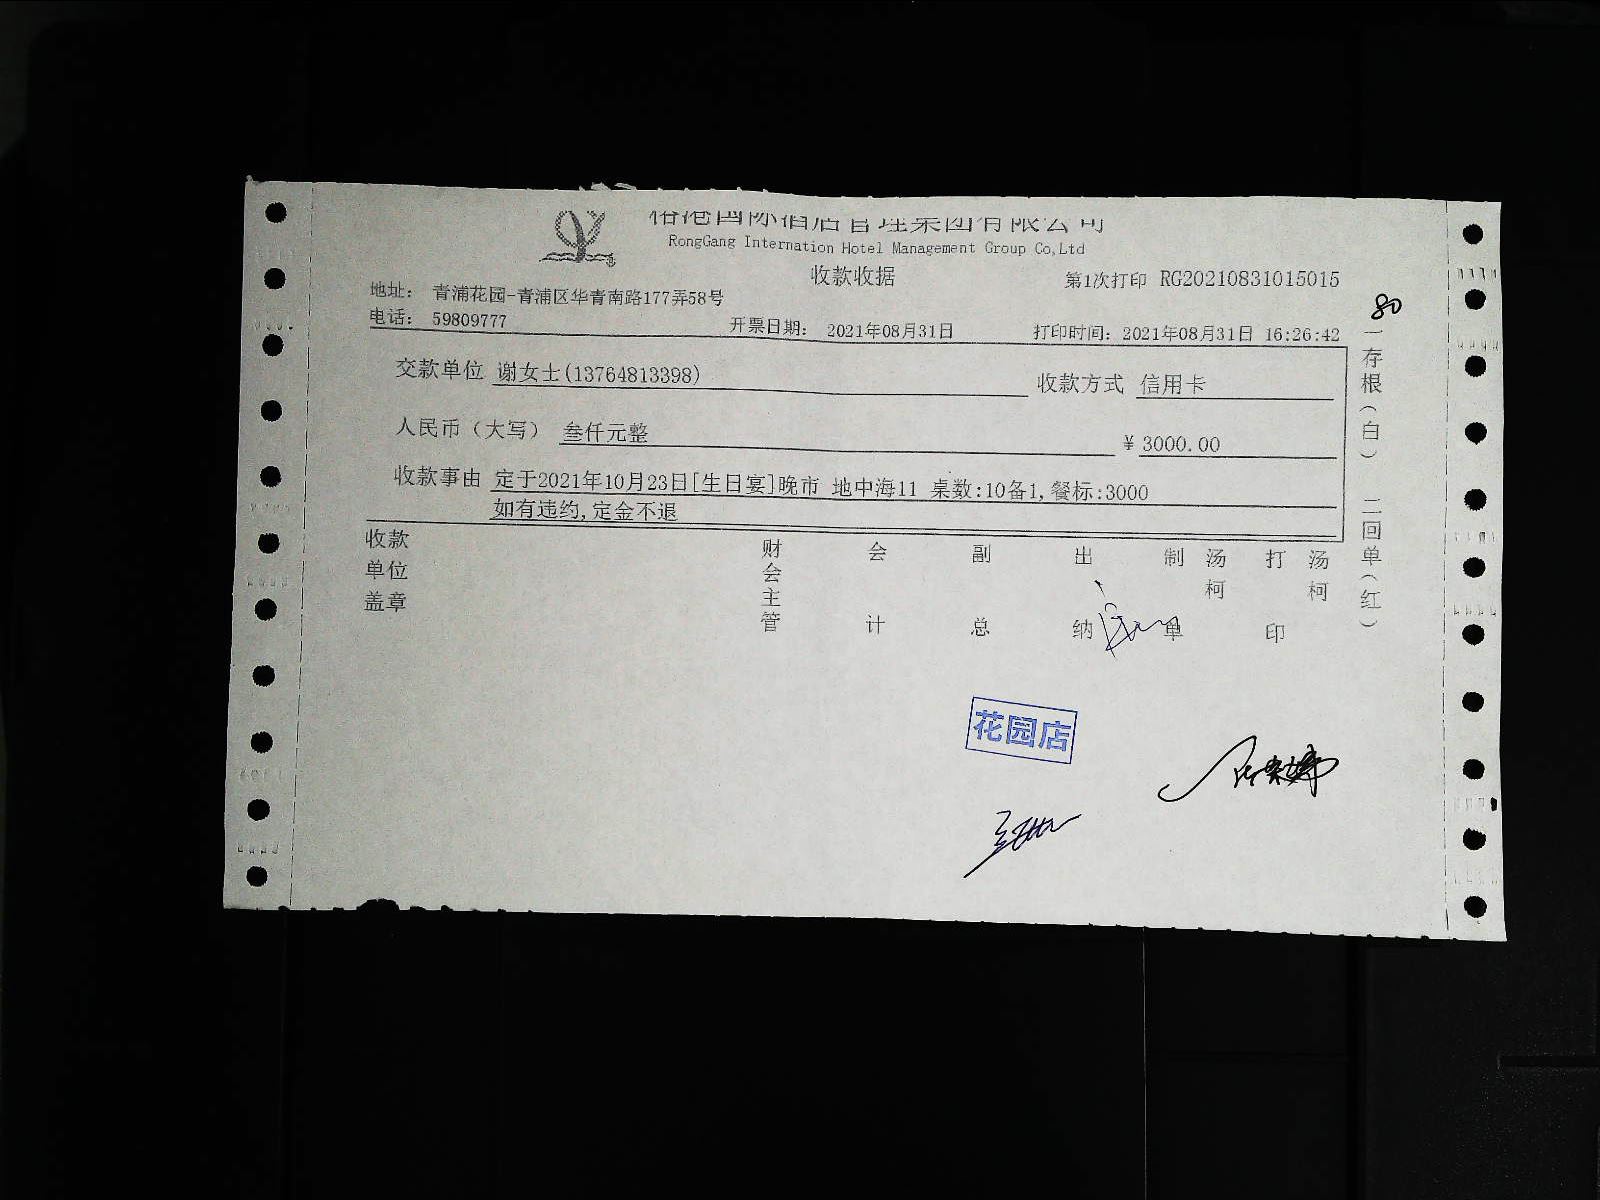 国际酒店管理集团有限公司
RongGang Internation Hotel Management Group Co,Ltd
收款收据
第1次打印 RG20210831015015
地址： 青浦花园-青浦区华青南路177弄58号
电话： 59809777
开票日期： 2021年08月31日
打印时间：2021年08月31日 16:26:42
80
交款单位 谢女士(13764813398)
收款方式 信用卡
人民币（大写） 叁仟元整
¥ 3000.00
收款事由 定于2021年10月23日[生日宴]晚市 地中海11 桌数:10备1,餐标:3000
如有违约,定金不退
一存根（白） 二回单（红）
收款单位盖章
财会主管
会计
副总
出纳
制单 汤柯
打印 汤柯
花园店